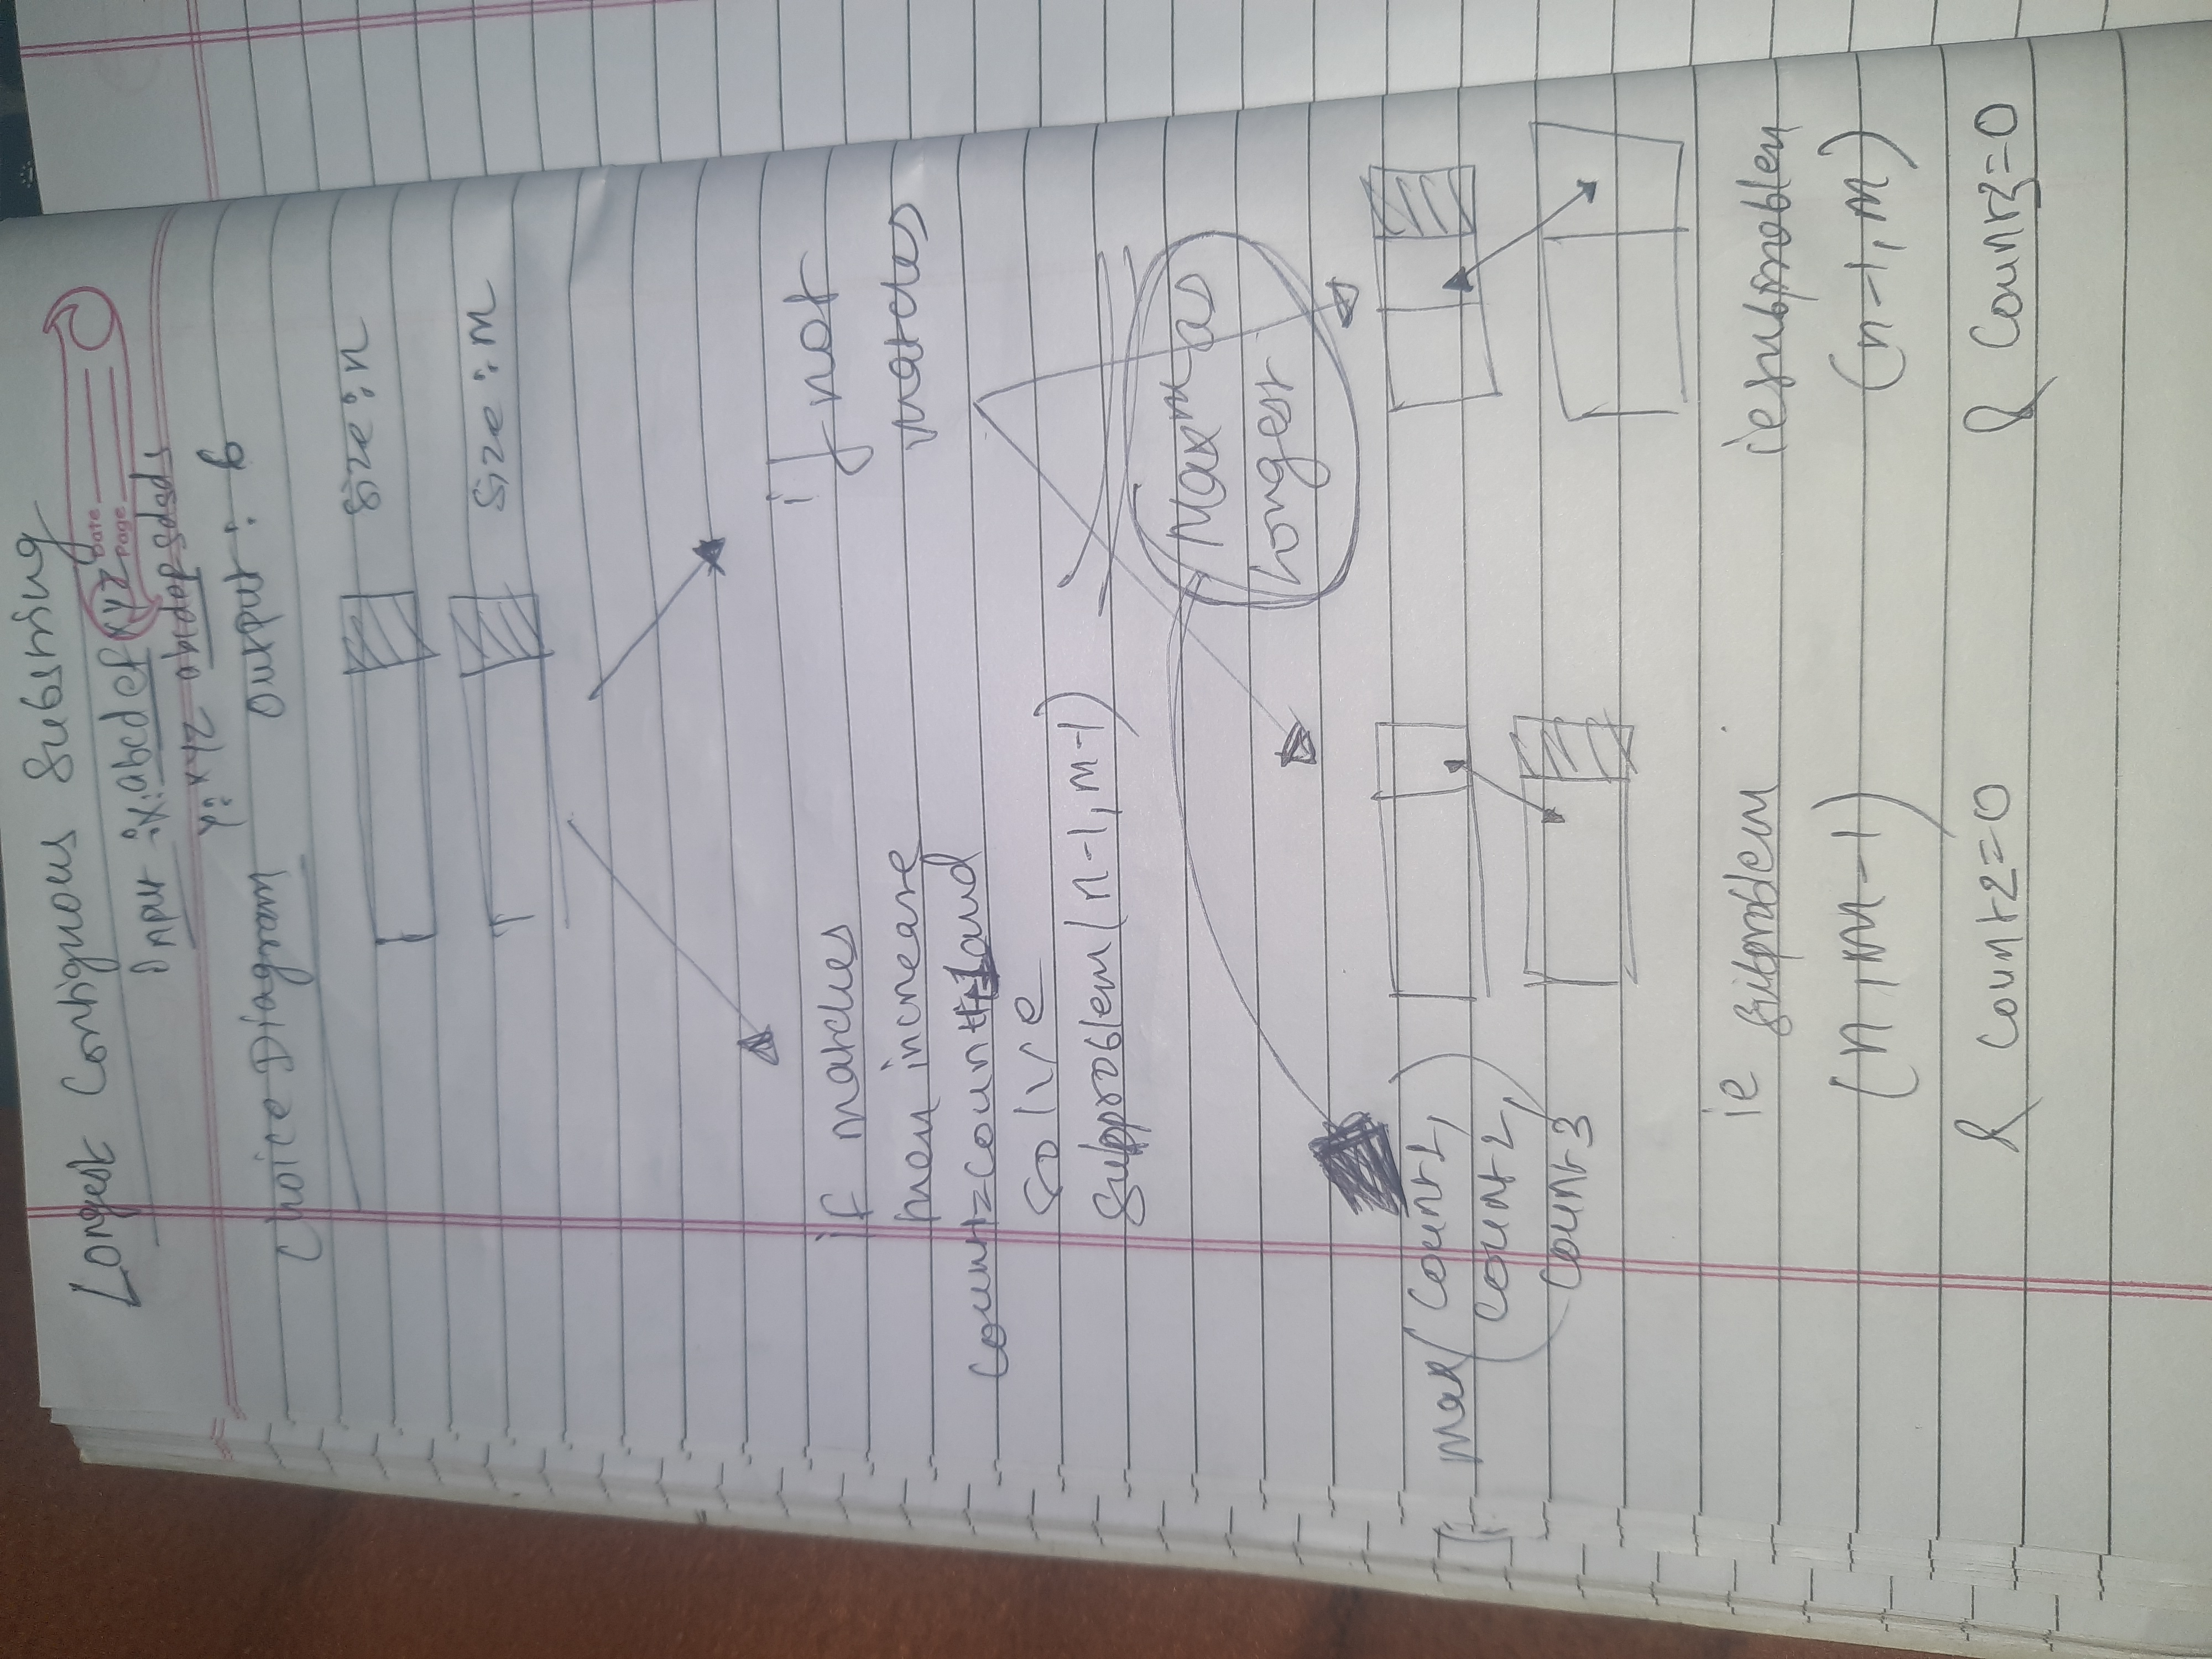 Longest Contiguous Substring
Date
Page
Input : X: abcdefxyz
Y: xyz abcdef sdsds
Choice Diagram
Output : 6
size : n
size : m
if matches
then increase
count1=count+1 and
solve
subproblem(n-1, m-1)
if not
matches
Maxm as
longest
max(count1,
count2,
count3)
ie subproblem
(n, m-1)
& count2=0
ie subproblem
(n-1, m)
& count3=0